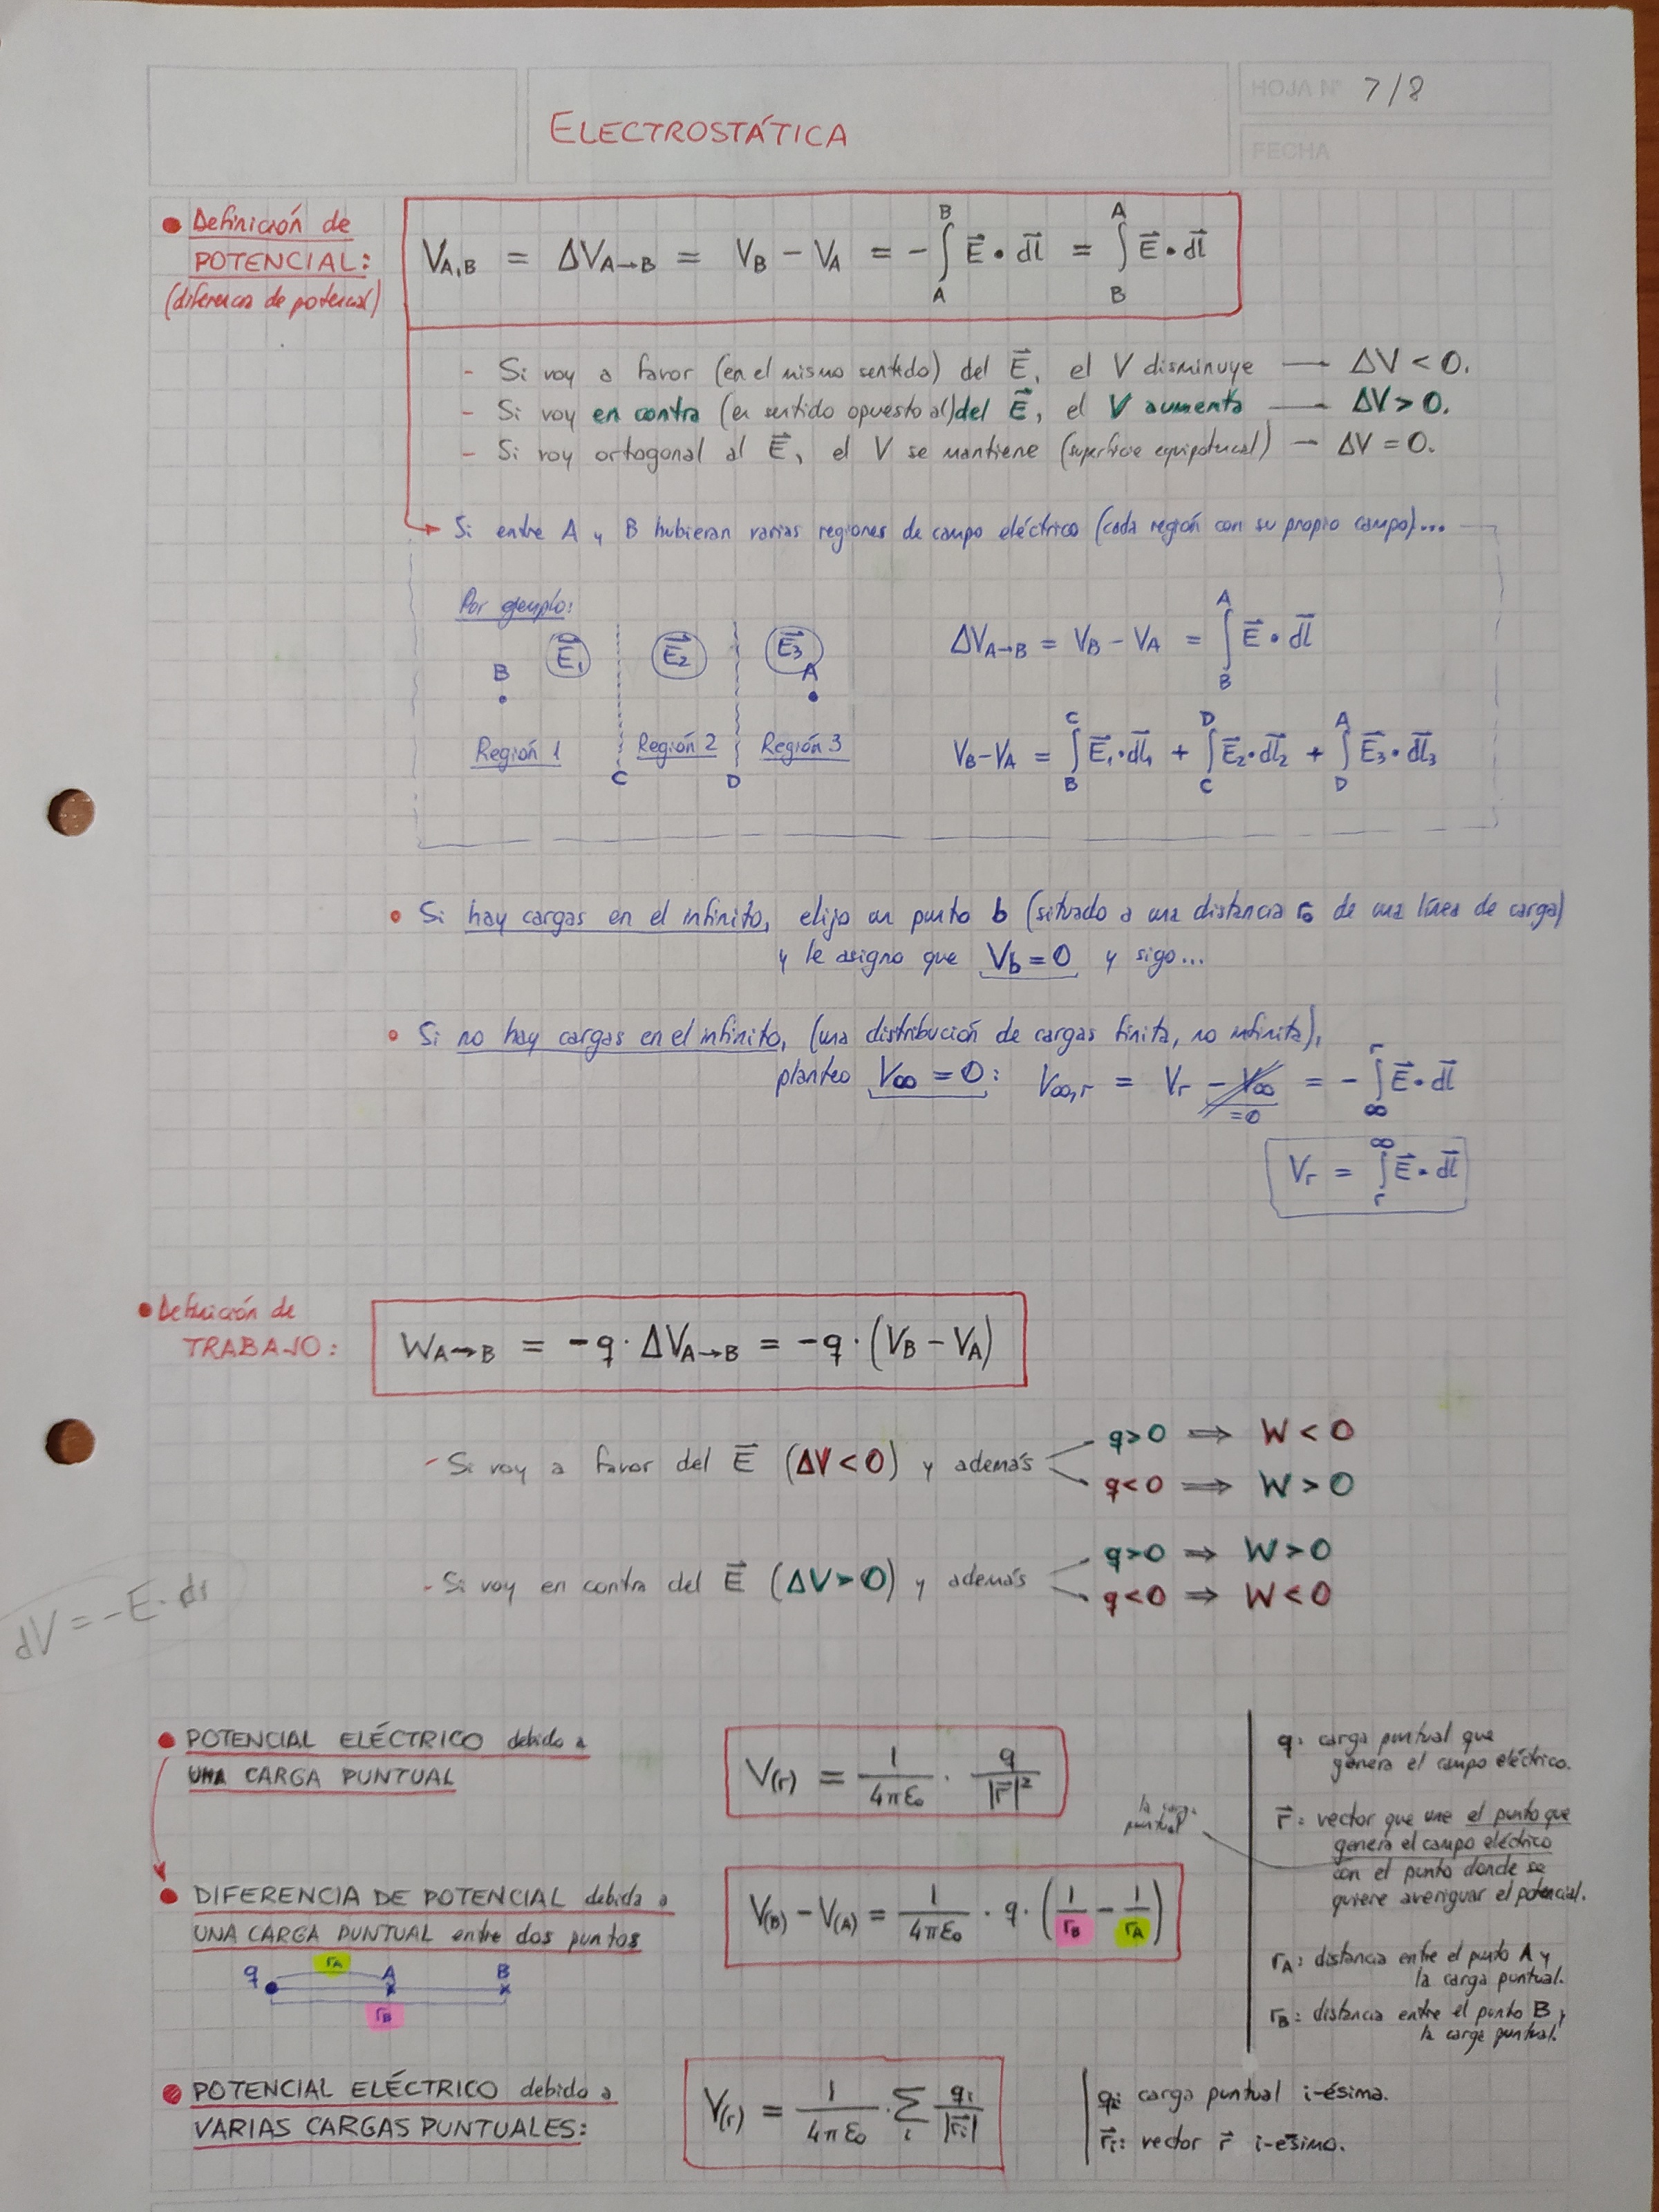 HOJA Nº 7/8
ELECTROSTÁTICA
FECHA
• Definición de
POTENCIAL:
(diferencia de potencial)
V_{A,B} = ΔV_{A→B} = V_B − V_A = −∫_A^B E⃗ • dl⃗ = ∫_B^A E⃗ • dl⃗
- Si voy a favor (en el mismo sentido) del E⃗, el V disminuye — ΔV < 0.
- Si voy en contra (en sentido opuesto al) del E⃗, el V aumenta — ΔV > 0.
- Si voy ortogonal al E⃗, el V se mantiene (superficie equipotencial) — ΔV = 0.
→ Si entre A y B hubieran varias regiones de campo eléctrico (cada región con su propio campo)...
Por ejemplo:
E⃗₁ E⃗₂ E⃗₃
B A
Región 1 Región 2 Región 3
C D
ΔV_{A→B} = V_B − V_A = ∫_B^A E⃗ • dl⃗
V_B − V_A = ∫_B^C E⃗₁ • dl⃗₁ + ∫_C^D E⃗₂ • dl⃗₂ + ∫_D^A E⃗₃ • dl⃗₃
• Si hay cargas en el infinito, elijo un punto b (situado a una distancia r₀ de una línea de carga)
y le asigno que V_b = 0 y sigo...
• Si no hay cargas en el infinito, (una distribución de cargas finita, no infinita),
planteo V_∞ = 0: V_{∞,r} = V_r − V_∞ = −∫_∞^r E⃗ • dl⃗
=0
V_r = ∫_r^∞ E⃗ • dl⃗
• Definición de
TRABAJO:
W_{A→B} = −q · ΔV_{A→B} = −q · (V_B − V_A)
- Si voy a favor del E⃗ (ΔV < 0) y además
q > 0 ⟹ W < 0
q < 0 ⟹ W > 0
- Si voy en contra del E⃗ (ΔV > 0) y además
q > 0 ⟹ W > 0
q < 0 ⟹ W < 0
dV = −E · ds
• POTENCIAL ELÉCTRICO debido a
UNA CARGA PUNTUAL
V(r) = 1/(4πε₀) · q/|r⃗|²
q: carga puntual que
genera el campo eléctrico.
la carga
puntual
r⃗: vector que une el punto que
genera el campo eléctrico
con el punto donde se
quiere averiguar el potencial.
• DIFERENCIA DE POTENCIAL debida a
UNA CARGA PUNTUAL entre dos puntos
V(B) − V(A) = 1/(4πε₀) · q · (1/r_B − 1/r_A)
q r_A A B
r_B
r_A: distancia entre el punto A y
la carga puntual.
r_B: distancia entre el punto B y
la carga puntual.
• POTENCIAL ELÉCTRICO debido a
VARIAS CARGAS PUNTUALES:
V(r) = 1/(4πε₀) · Σ_i q_i/|r⃗_i|
q_i: carga puntual i-ésima.
r⃗_i: vector r⃗ i-ésimo.